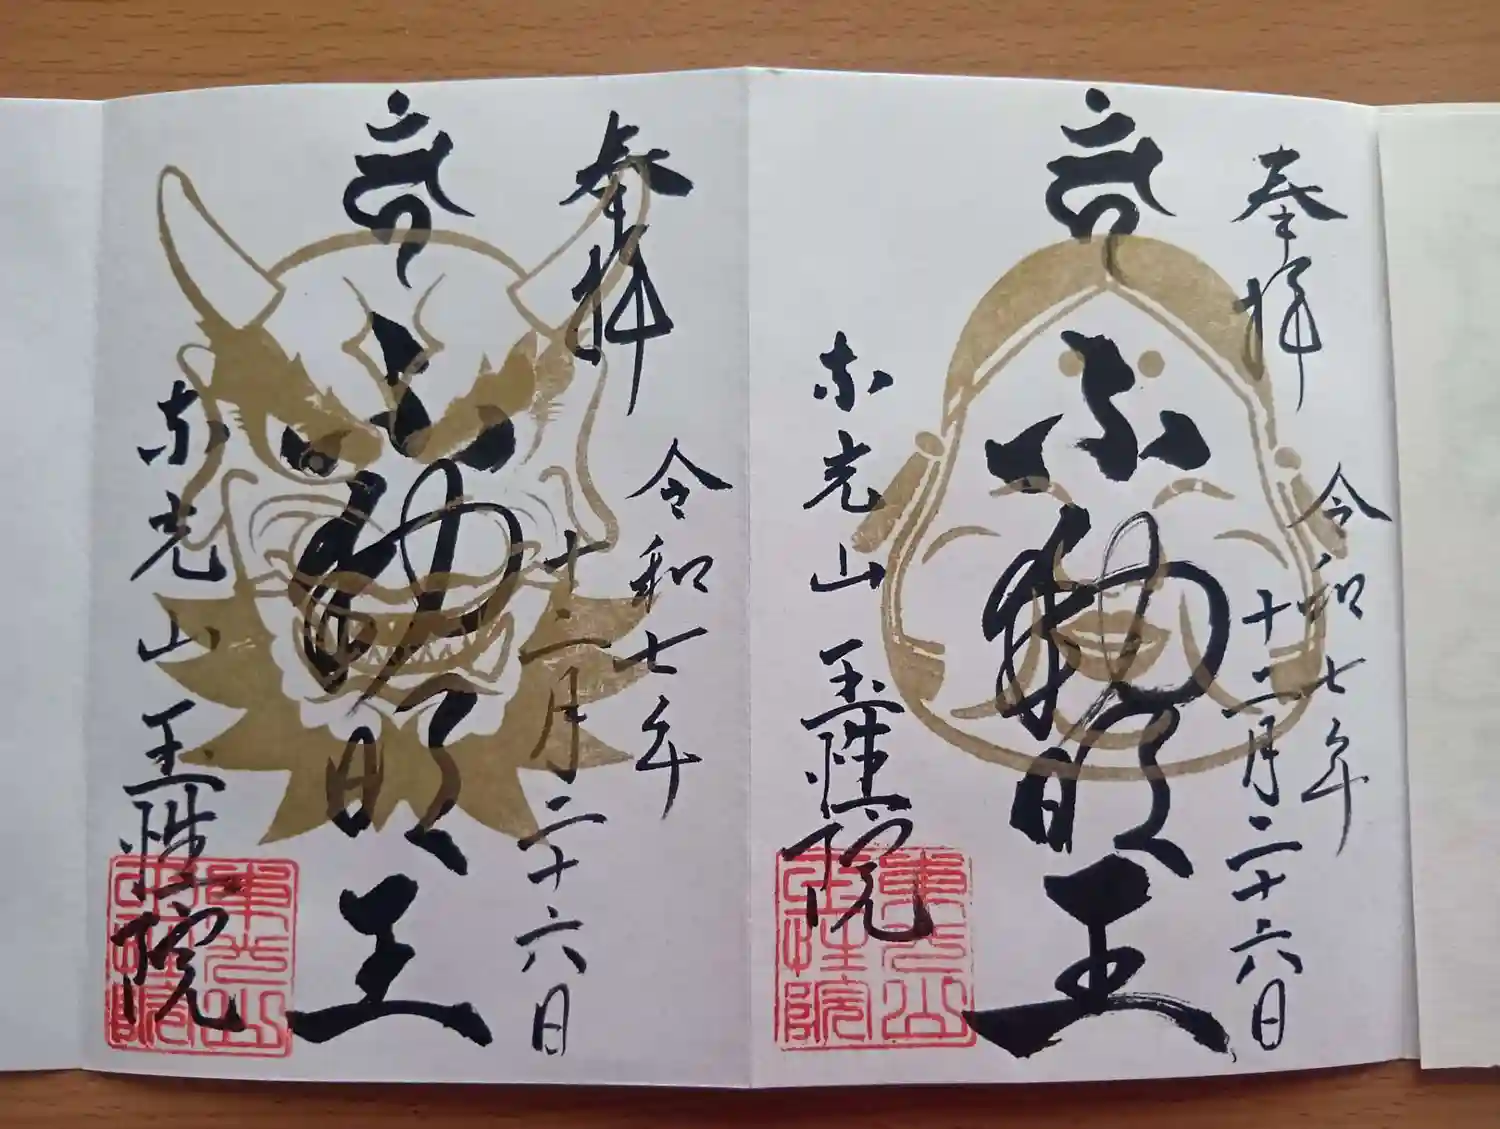 奉拝
令和七年
十二月二十六日
不動明王
東光山
玉性院
東光山
玉性院
奉拝
令和七年
十二月二十六日
不動明王
東光山
玉性院
東光山
玉性院